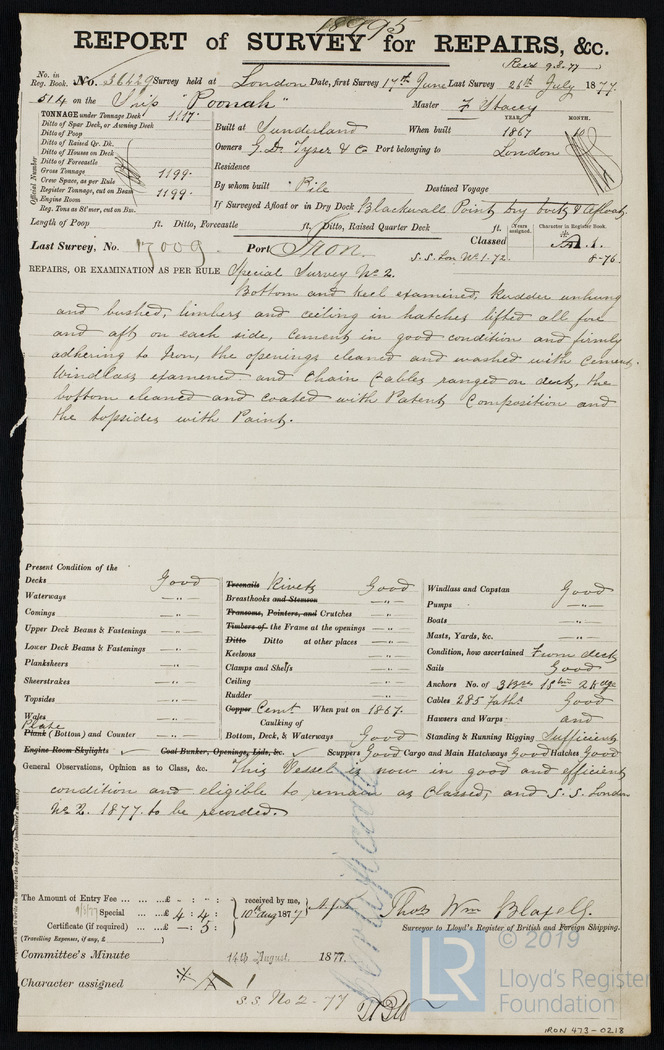 18995
REPORT of SURVEY for REPAIRS, &c.
Recd 9.8.77
No. in Reg. Book. No. 36429 Survey held at London Date, first Survey 17th June Last Survey 26th July 1877.
514 on the Ship "Poonah" Master F Stacey
TONNAGE under Tonnage Deck 1117.
Ditto of Spar Deck, or Awning Deck
Ditto of Poop
Ditto of Raised Qr. Dk.
Ditto of Houses on Deck
Ditto of Forecastle
Gross Tonnage 1199.
Crew Space, as per Rule
Register Tonnage, cut on Beam 1199.
Engine Room
Reg. Tons as St'mer, cut on Bm.
Official Number
YEAR. MONTH.
Built at Sunderland When built 1867 10
Owners G. D. Tyser & Co Port belonging to London
Residence
By whom built Pile Destined Voyage
If Surveyed Afloat or in Dry Dock Blackwall Point dry dock & Afloat.
Length of Poop ft. Ditto, Forecastle ft. Ditto, Raised Quarter Deck ft.
Years assigned. Character in Register Book.
Last Survey, No. 17009. Port Iron. Classed A.1.
S.S. Lon No 1-72. 8-76.
REPAIRS, OR EXAMINATION AS PER RULE Special Survey No 2.
Bottom and keel examined, Rudder unhung
and bushed, limbers and ceiling in hatches lifted all fore
and aft on each side, cement in good condition and firmly
adhering to Iron, the openings cleaned and washed with cement.
Windlass examened and chain cables ranged on deck, the
bottom cleaned and coated with Patent Composition and
the topsides with Paint.
Present Condition of the
Decks Good
Waterways —"—
Comings —"—
Upper Deck Beams & Fastenings —"—
Lower Deck Beams & Fastenings —"—
Planksheers —"—
Sheerstrakes —"—
Topsides —"—
Wales —"—
Plate
Plank (Bottom) and Counter —"—
Treenails Rivets Good
Breasthooks and Stemson —"—
Transoms, Pointers, and Crutches —"—
Timbers of the Frame at the openings —"—
Ditto Ditto at other places —"—
Keelsons —"—
Clamps and Shelfs —"—
Ceiling —"—
Rudder —"—
Copper Cemt When put on 1867.
Caulking of
Bottom, Deck, & Waterways Good
Windlass and Capstan Good
Pumps —"—
Boats —"—
Masts, Yards, &c. —"—
Condition, how ascertained From deck
Sails Good
Anchors No. of 3 Brs 1 Stm 2 Kdgs
Cables 285 faths Good
Hawsers and Warps and
Standing & Running Rigging Sufficient
Engine Room Skylights ✓ Coal Bunker, Openings, Lids, &c. ✓ Scuppers Good Cargo and Main Hatchways Good Hatches Good
General Observations, Opinion as to Class, &c. This Vessel is now in good and efficient
condition and eligible to remain as Classed, and S.S. London
No 2. 1877. to be recorded.
Certificate
The Amount of Entry Fee ... ... ... £ - : - :
Special ... ... £ 4 : 4 :
Certificate (if required) ... £ — : 5 :
(Travelling Expenses, if any, £ )
received by me,
10th Aug 1877
Thos Wm Blaxell.
Surveyor to Lloyd's Register of British and Foreign Shipping.
Committee's Minute 14th August 1877.
Character assigned A 1
S.S. No 2-77
LR
© 2019
Lloyd's Register
Foundation
IRON 473-0218